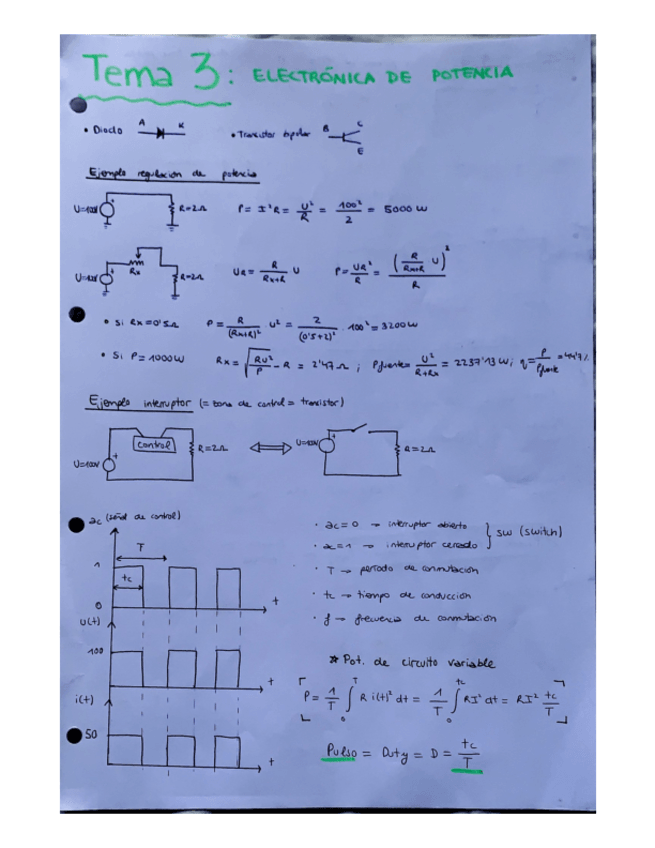 Tema 3: ELECTRÓNICA DE POTENCIA
• Diodo A K • Transistor bipolar B C E
Ejemplo regulación de potencia
U=100V R=2Ω P= I²R= U²/R = 100²/2 = 5000 W
U=100V Rx R=2Ω UR= R/(Rx+R) U P= UR²/R = (R/(Rx+R) U)²/R
• Si Rx=0'5Ω P= R/(Rx+R)² U² = 2/(0'5+2)² · 100² = 3200W
• Si P=1000W Rx= √(RU²/P) - R = 2'47 Ω ; Pfuente= U²/(R+Rx) = 2237'13 W; η= P/Pfuente = 44'7%
Ejemplo interruptor (= zona de control = transistor)
U=100V + control R=2Ω ⟺ U=100V + R=2Ω
ac (señal de control)
T
tc
1
0
t
u(t)
100
t
i(t)
50
t
· ac=0 → interruptor abierto
· ac=1 → interruptor cerrado } SW (switch)
· T → período de conmutación
· tc → tiempo de conducción
· f → frecuencia de conmutación
* Pot. de circuito variable
P= 1/T ∫₀ᵀ R i(t)² dt = 1/T ∫₀ᵗᶜ RI² dt = RI² tc/T
Pulso = Duty = D = tc/T